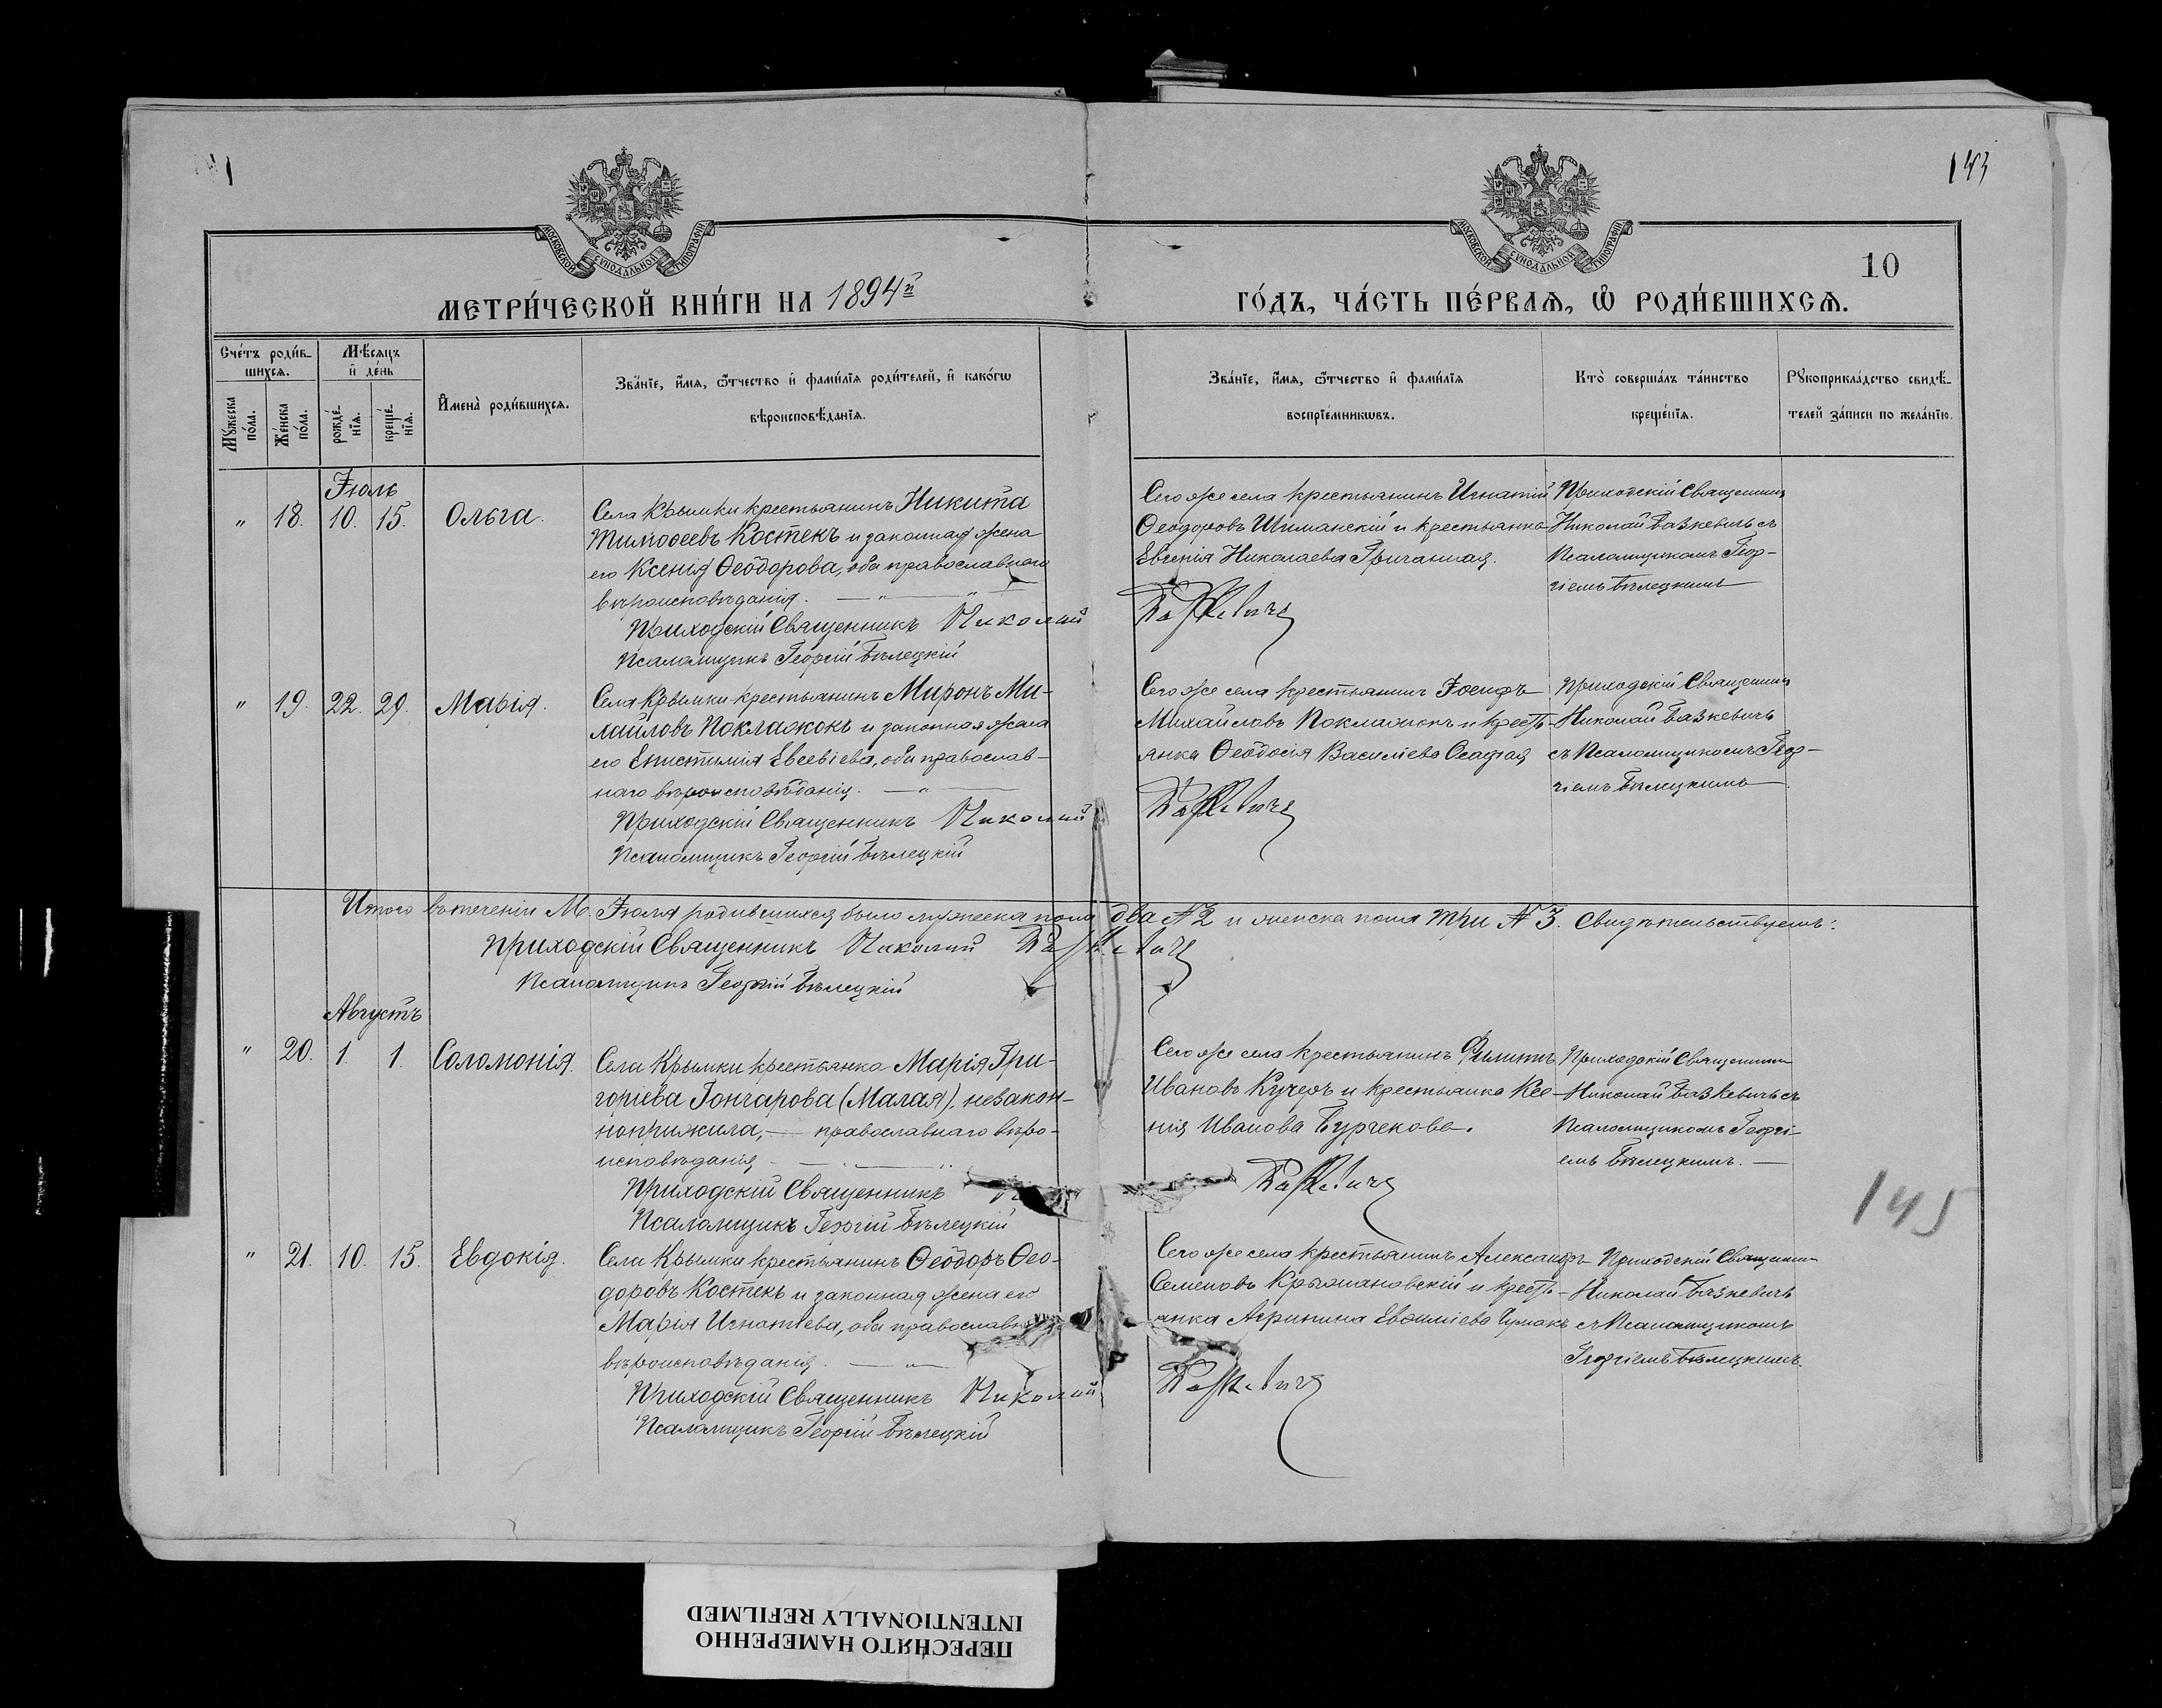 143
МОСКОВСКОЙ СѴНОДАЛЬНОЙ ТИПОГРАФІИ
МОСКОВСКОЙ СѴНОДАЛЬНОЙ ТИПОГРАФІИ
10
МЕТРИ́ЧЕСКОЙ КНИ́ГИ НА 1894й
ГО́ДЪ, ЧА́СТЬ ПЕ́РВАѦ, Ѿ РОДИ́ВШИХСѦ.
Сче́тъ роди́в-
шихсѧ.
Мѣ́сѧцъ
и҆ де́нь
Мꙋ́жеска по́ла.
Же́нска по́ла.
рожде́-
нїѧ.
креще́-
нїѧ.
И҆мена̀ роди́вшихсѧ.
Зва́нїе, и҆́мѧ, ѻ҆́тчество и҆ фами́лїѧ роди́телей, и҆ како́гѡ
вѣроисповѣ́данїѧ.
Зва́нїе, и҆́мѧ, ѻ҆́тчество и҆ фами́лїѧ
воспрїе́мникѡвъ.
Кто̀ соверша́лъ та́инство
креще́нїѧ.
Рꙋкоприкла́дство свидѣ́-
телей за́писи по жела́нїю.
Іюль
" 18. 10. 15. Ольга.
Села Крымки крестьянинъ Никита
Тимоѳеевъ Костекъ и законная жена
его Ксенія Ѳеодорова, оба православнаго
вѣроисповѣданія. — " —
Приходскій Священникъ Николай Базкевичъ
Псаломщикъ Георгій Бѣлецкій
Сего же села крестьянинъ Игнатій
Ѳеодоровъ Шиманскій и крестьянка
Евгенія Николаева Гричанная.
Приходскій Священникъ
Николай Базкевичъ съ
Псаломщикомъ Геор-
гіемъ Бѣлецкимъ
" 19. 22. 29. Марія.
Села Крымки крестьянинъ Миронъ Ми-
хайловъ Поклажокъ и законная жена
его Епистимія Евсевіева, оба православ-
наго вѣроисповѣданія. — " —
Приходскій Священникъ Николай Базкевичъ
Псаломщикъ Георгій Бѣлецкій
Сего же села крестьянинъ Іосифъ
Михайловъ Поклажокъ и кресть-
янка Ѳеодосія Василіева
Приходскій Священникъ
Николай Базкевичъ
съ Псаломщикомъ Геор-
гіемъ Бѣлецкимъ
Итого въ теченіи М. Іюля родившихся было мужеска пола два № 2 и женска пола три № 3. Свидѣтельствуемъ:
Приходскій Священникъ Николай Базкевичъ
Псаломщикъ Георгій Бѣлецкій
Августъ
" 20. 1. 1. Соломонія.
Села Крымки крестьянка Марія Гри-
горіева Гончарова (Малая), незакон-
ноприжила, — православнаго вѣро-
исповѣданія.
Приходскій Священникъ Базкевичъ
Псаломщикъ Георгій Бѣлецкій
Сего же села крестьянинъ Филиппъ
Ивановъ Кучеръ и крестьянка Ксе-
нія Иванова
Приходскій Священникъ
Николай Базкевичъ съ
Псаломщикомъ Георгі-
емъ Бѣлецкимъ. —
145
" 21. 10. 15. Евдокія.
Села Крымки крестьянинъ Ѳеодоръ Ѳео-
доровъ Костекъ и законная жена его
Марія Игнатіева, оба православн
вѣроисповѣданія. — " —
Приходскій Священникъ Николай Базкевичъ
Псаломщикъ Георгій Бѣлецкій
Сего же села крестьянинъ Александръ
Семеновъ Крыжановскій и кресть-
янка Агрипина Евѳиміева Чумакъ
Приходскій Священникъ
Николай Базкевичъ
съ Псаломщикомъ
Георгіемъ Бѣлецкимъ
ПЕРЕСНЯТО НАМЕРЕННО
INTENTIONALLY REFILMED